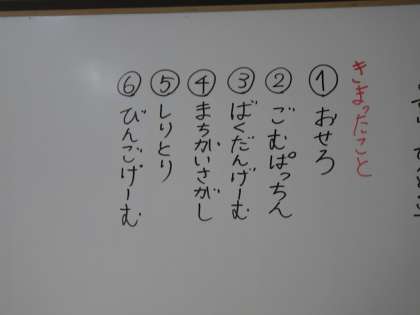 きまったこと
①おせろ
②ごむぱっちん
③ばくだんげーむ
④まちがいさがし
⑤しりとり
⑥びんごげーむ